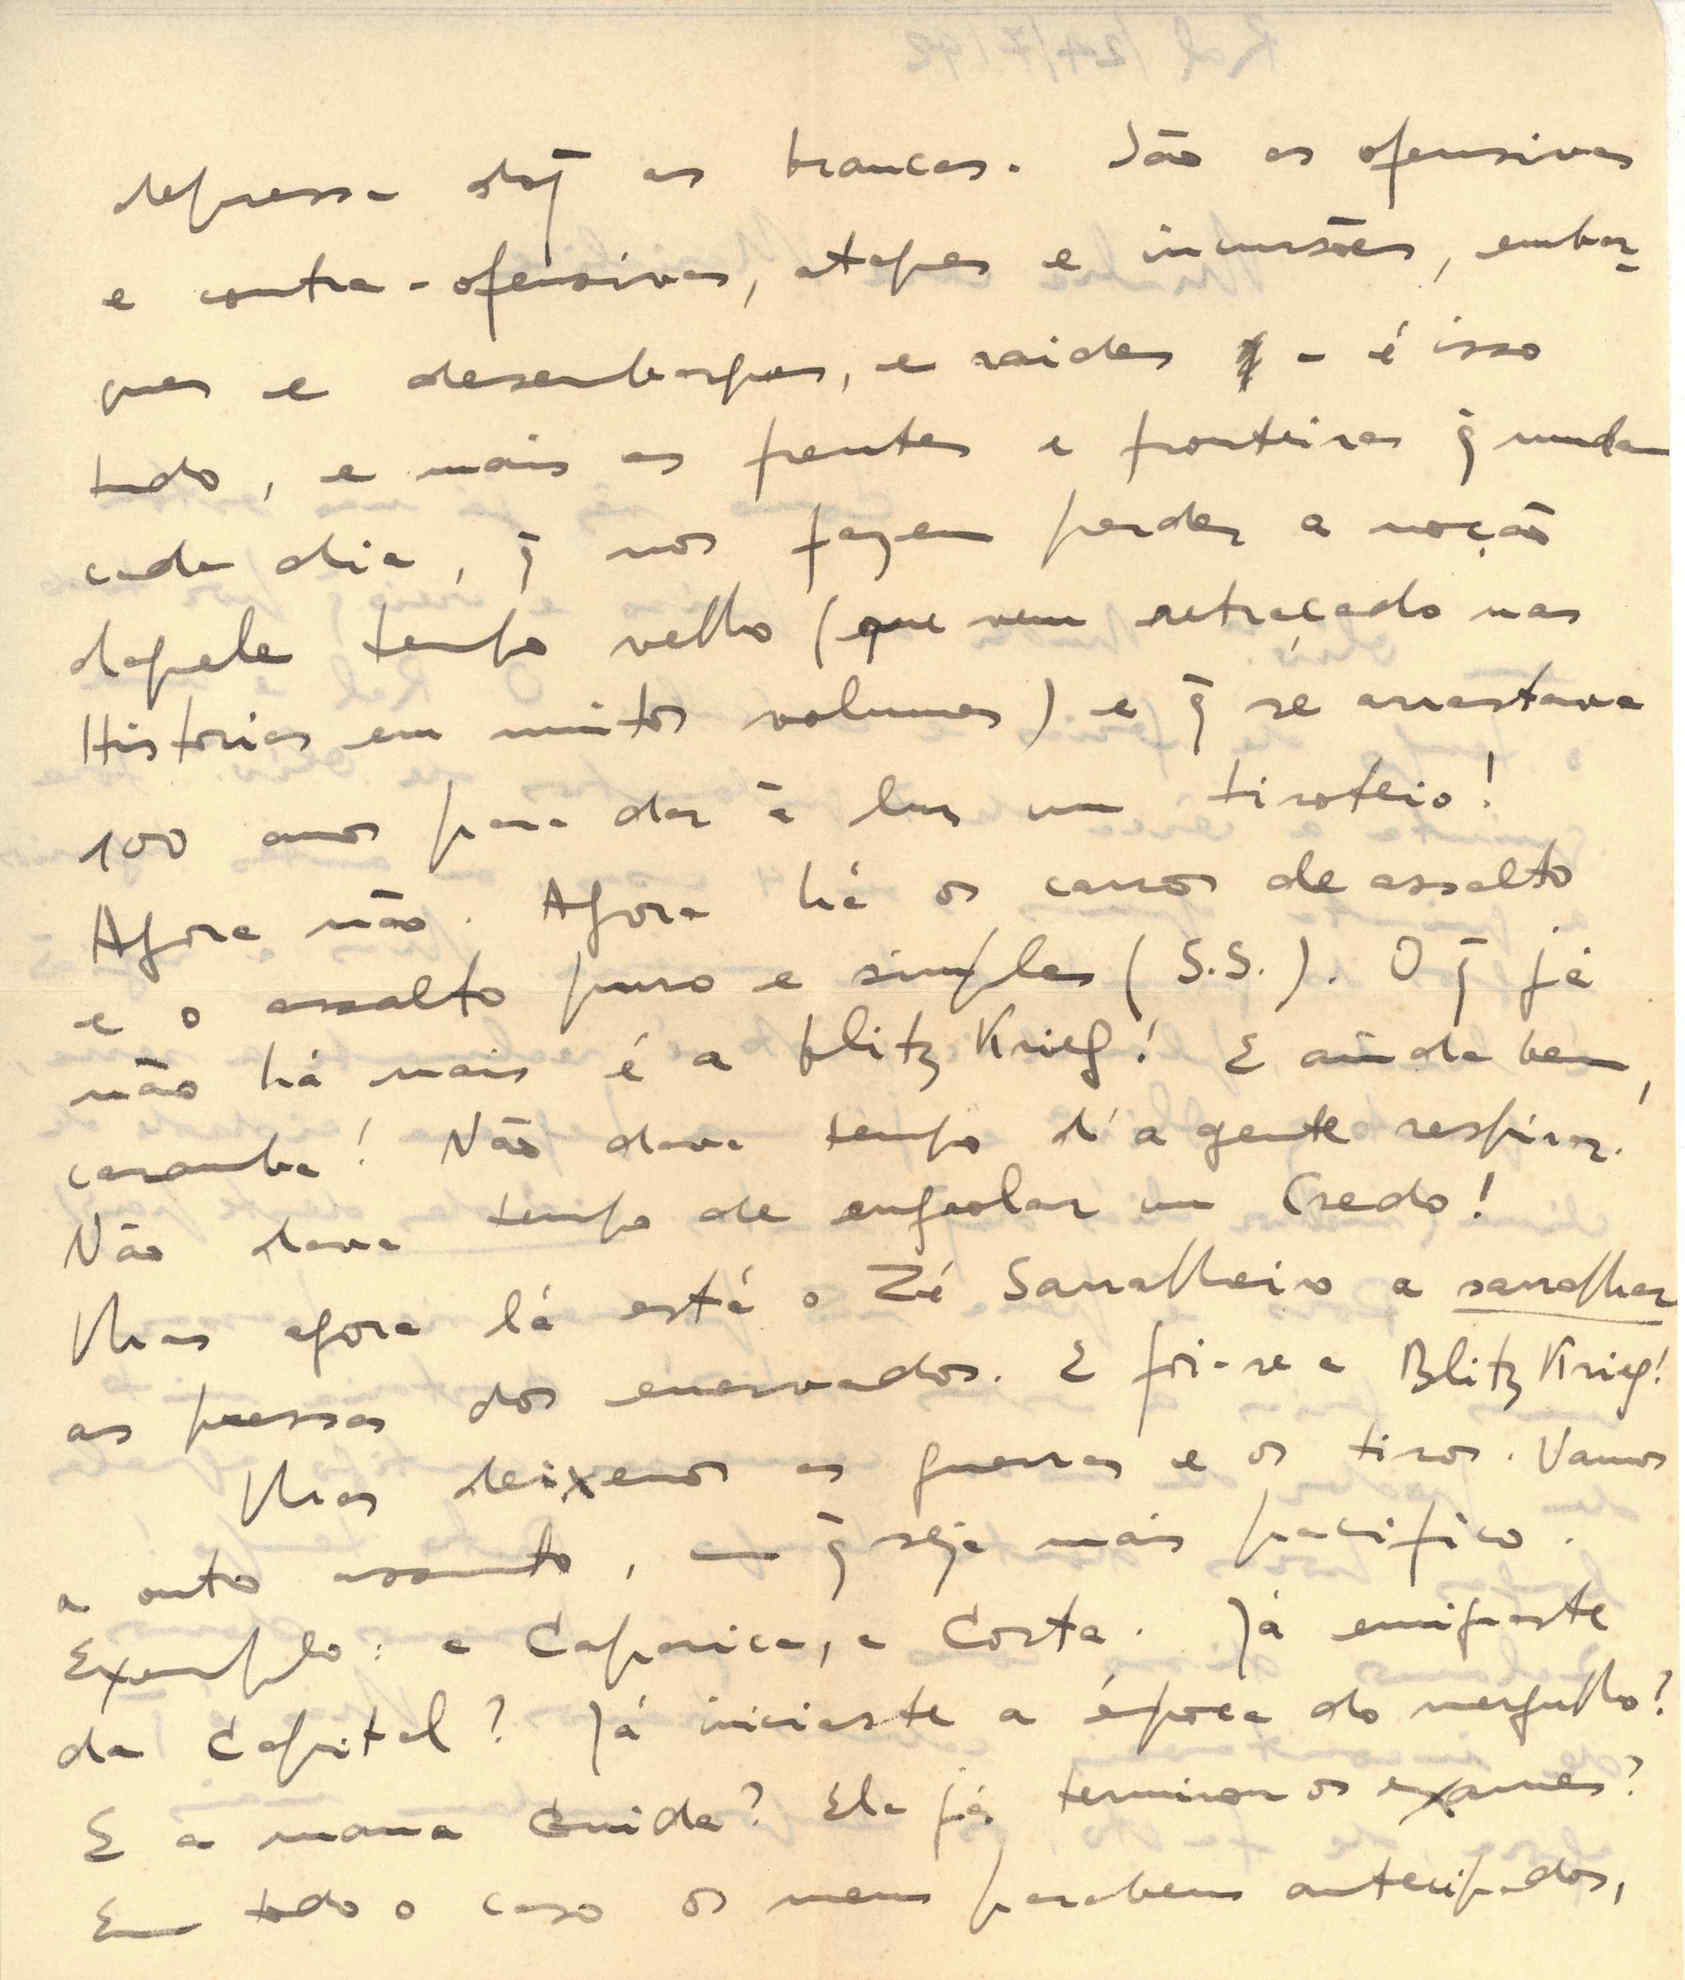 depressa do q̃ as brancas. São as ofensivas
e contra-ofensivas, ataques e incursões, embar-
ques e desembarques, e raides - é isso
tudo, e mais as frentes e fronteiras q̃ mudam
cada dia, q̃ nos fazem perder a noção
daquele tempo velho (que vem retraçado nas
Historias em muitos volumes) e q̃ se arrastava
100 anos para dar à luz um tiroteio!
Agora não. Agora há os carros de assalto
e o assalto puro e simples (S.S.). O q̃ já
não há mais é a blitz Krieg! E ainda bem,
caramba! Não dava tempo d'a gente respirar.
Não dava tempo de engrolar um Credo!
Mas agora lá está o Zé Sarralheiro a sarralhar
as pressas dos enervados. E foi-se a Blitz Krieg!
Mas deixemos as guerras e os tiros. Vamos
a outro assunto, q̃ seja mais pacifico.
Exemplo: a Caparica, a Costa. Já emigraste
da Capital? Já iniciaste a época do mergulho?
E a mana Guida? Ela já terminou os exames?
Em todo o caso os meus parabens antecipados,